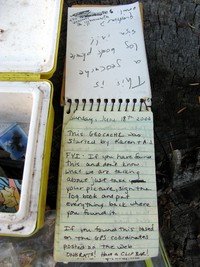 This is
a geocache
log book please
Sunday - June 18th 2000
This GEOCACHE was
started by Karen & AJ
FYI: If you have found
this and don't know
what we are talking
about just take
your picture, sign the
log book and put
everything back where
you found it.
If you found this based
on the GPS coordinates
posted on the web
CONGRATS! Have a cold